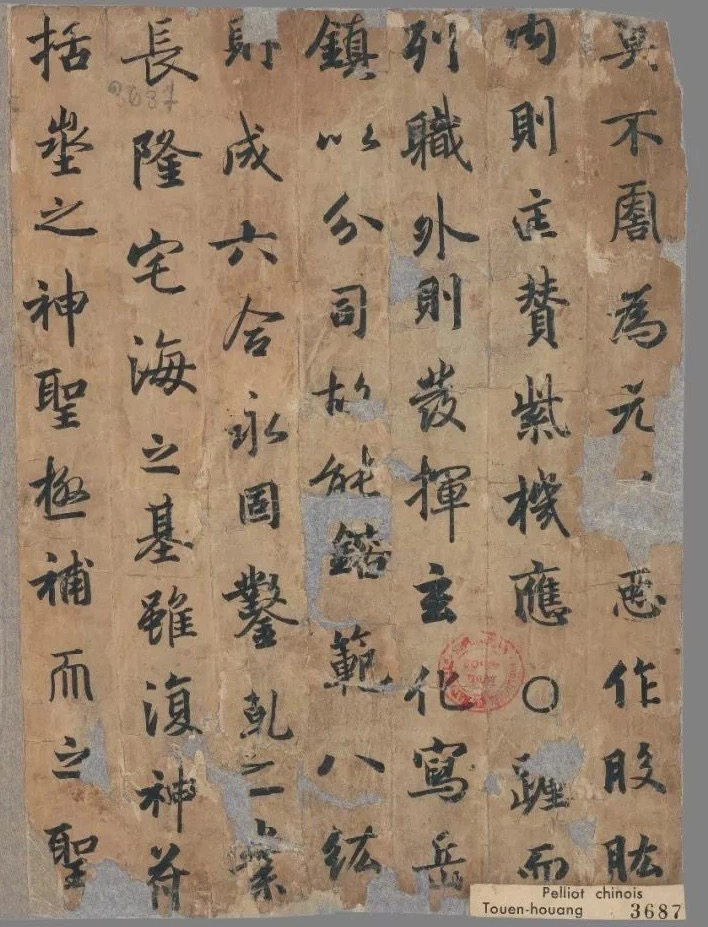 不周為元
惡作股肱
內則匡贊紫機應〇躔而
列職外則發揮玄化寫岳
鎮以分司故能鎔範八紘
財成六合永固鑿乹之業
長隆宅海之基雖復神苻
括壑之神聖極補而之聖
3687
Pelliot chinois
Touen-houang 3687